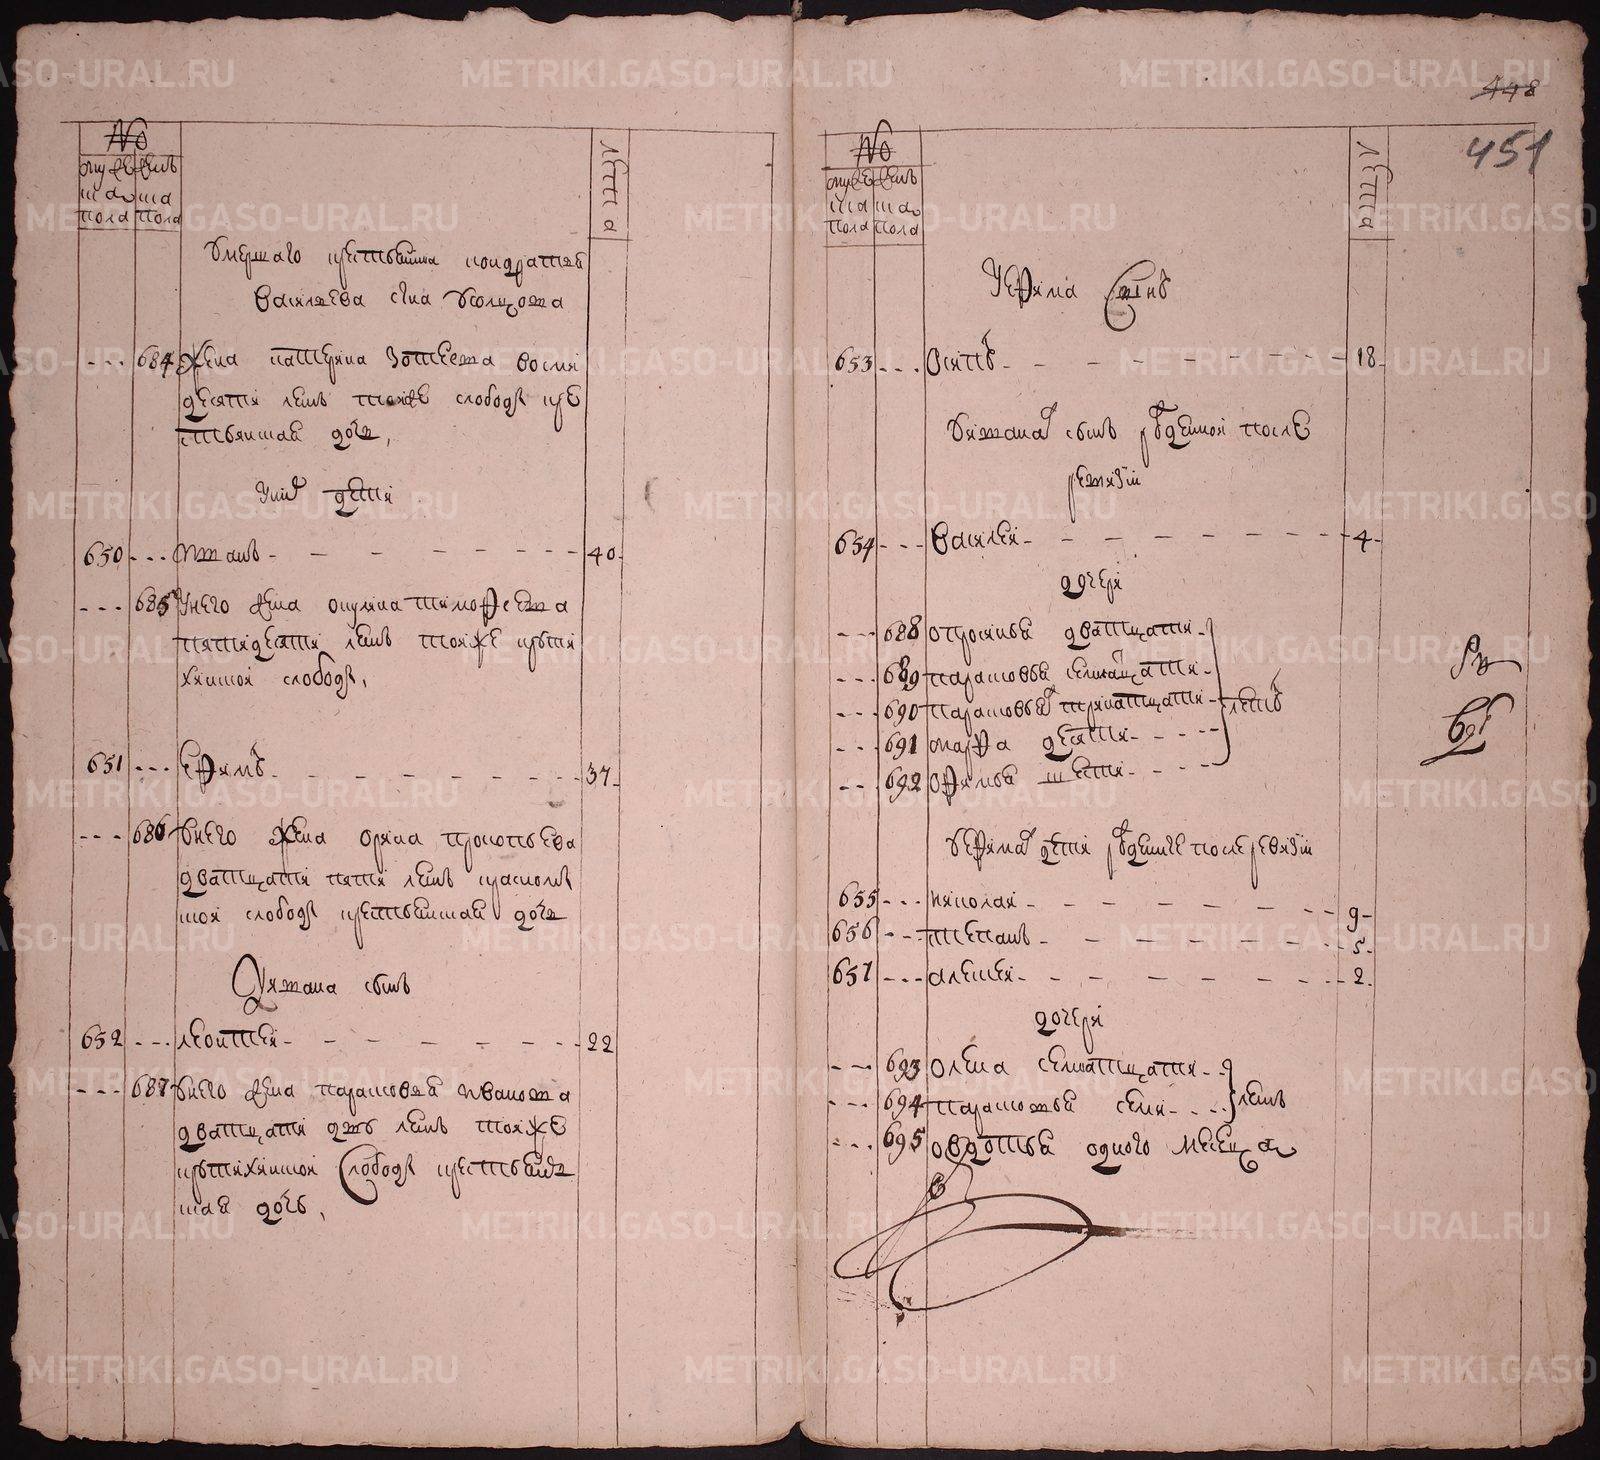 №
мужеска пола
женска пола
лета
умершаго крестьянина кондратья
васильева сна усолцова
684 жена катерина зотеева восми
десяти летъ тояже слободы кре
стьянская дочь,
у них дети
650 иванъ 40
685 у него жена акулина тимофеева
пятидесяти летъ тояже крути
хинской слободы,
651 ефимъ 37
686 у него жена орина прокопьева
дватцати пяти летъ красномы
ской слободы крестьянская дочь
у ивана сынъ
652 леонтей 22
687 у него жена парасковья иванова
дватцати дву летъ тояже
крутихинской слободы крестьян
ская дочь,
448
451
№
мужеска пола
женска пола
лета
у ефима сынъ
653 осипъ 18
у ивана сынъ рожденной после
ревизии
654 василей 4
дочери
688 офросинья дватцати
689 парасковья семнатцати
690 парасковья тринатцати летъ
691 марфа десяти
692 офимья шести
у ефима дети рожденые после ревизии
655 николай 9
656 степанъ 5
657 алексей 2
дочери
693 олена семнатцати
694 парасковья семи летъ
695 овдотья одного месеца